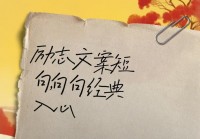 励志文案短
句句句经典
入心